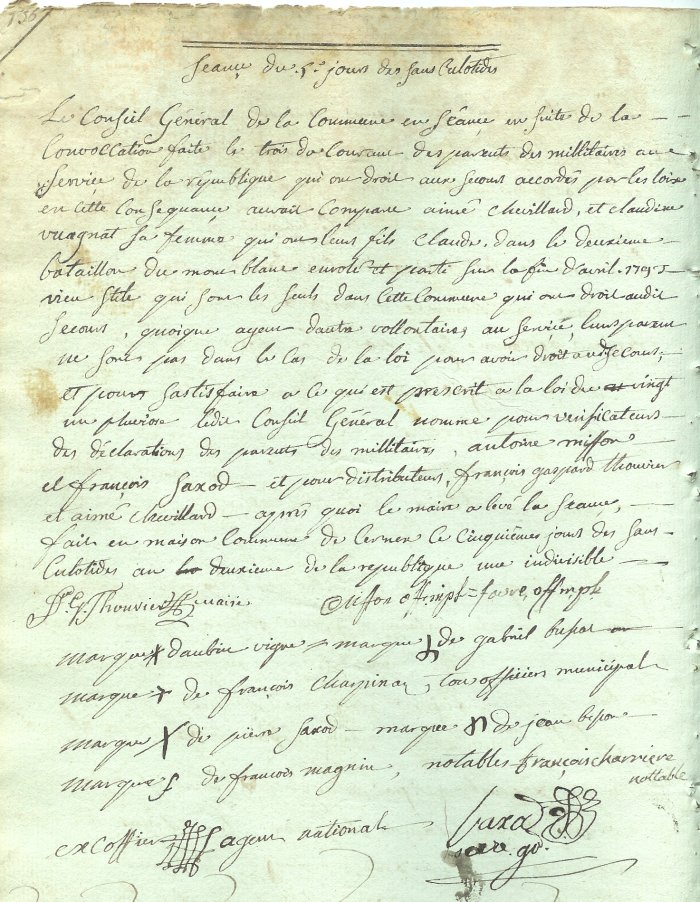 136
Séance du 5e jours des sans Culotides
Le Conseil Général de la Commune en Séance en suite de la
Convoccation faite le trois du Courant des parents des millitaires au
service de la république qui ont droit aux secours accordés par les loix
en cette Consequance auroit Comparu aimé chevillard, et claudine
vuagnat sa femme qui ont leurs fils Claude, dans le deuxieme
bataillon du mont blanc enrolé et parti sur la fin d'avril 1793
vieu stile qui sont les seuls dans Cette Commune qui ont droit audit
secours, quoique ayent dautre vollontaires au service, leurs parent
ne sont pas dans le cas de la loi pour avoir droit aud secours;
et pour sattisfaire a ce qui est prescrit a la loi du vingt
un pluviose ledit Conseil Général nomme pour verificateurs
des déclarations des parents des millitaires, antoine misson
et françois Saxod et pour distributeurs, françois gaspard Thouvier
et aimé chevillard après quoi le maire a levé la seance,
fait en maison Commune de Cernex ce cinquièmes jours des sans
Culotides an deuxieme de la republique une indivisible
fs G. Thouvier maire offmpl = favre, offmpl
marque d'aubin vigne = marque de gabriel
marque de françois Charpinaz, tou officiers municipal
marque de pierre Saxod marque de jean
marque de françois magnin, notables françois charriere
nottable
excoffier agent national Saxod